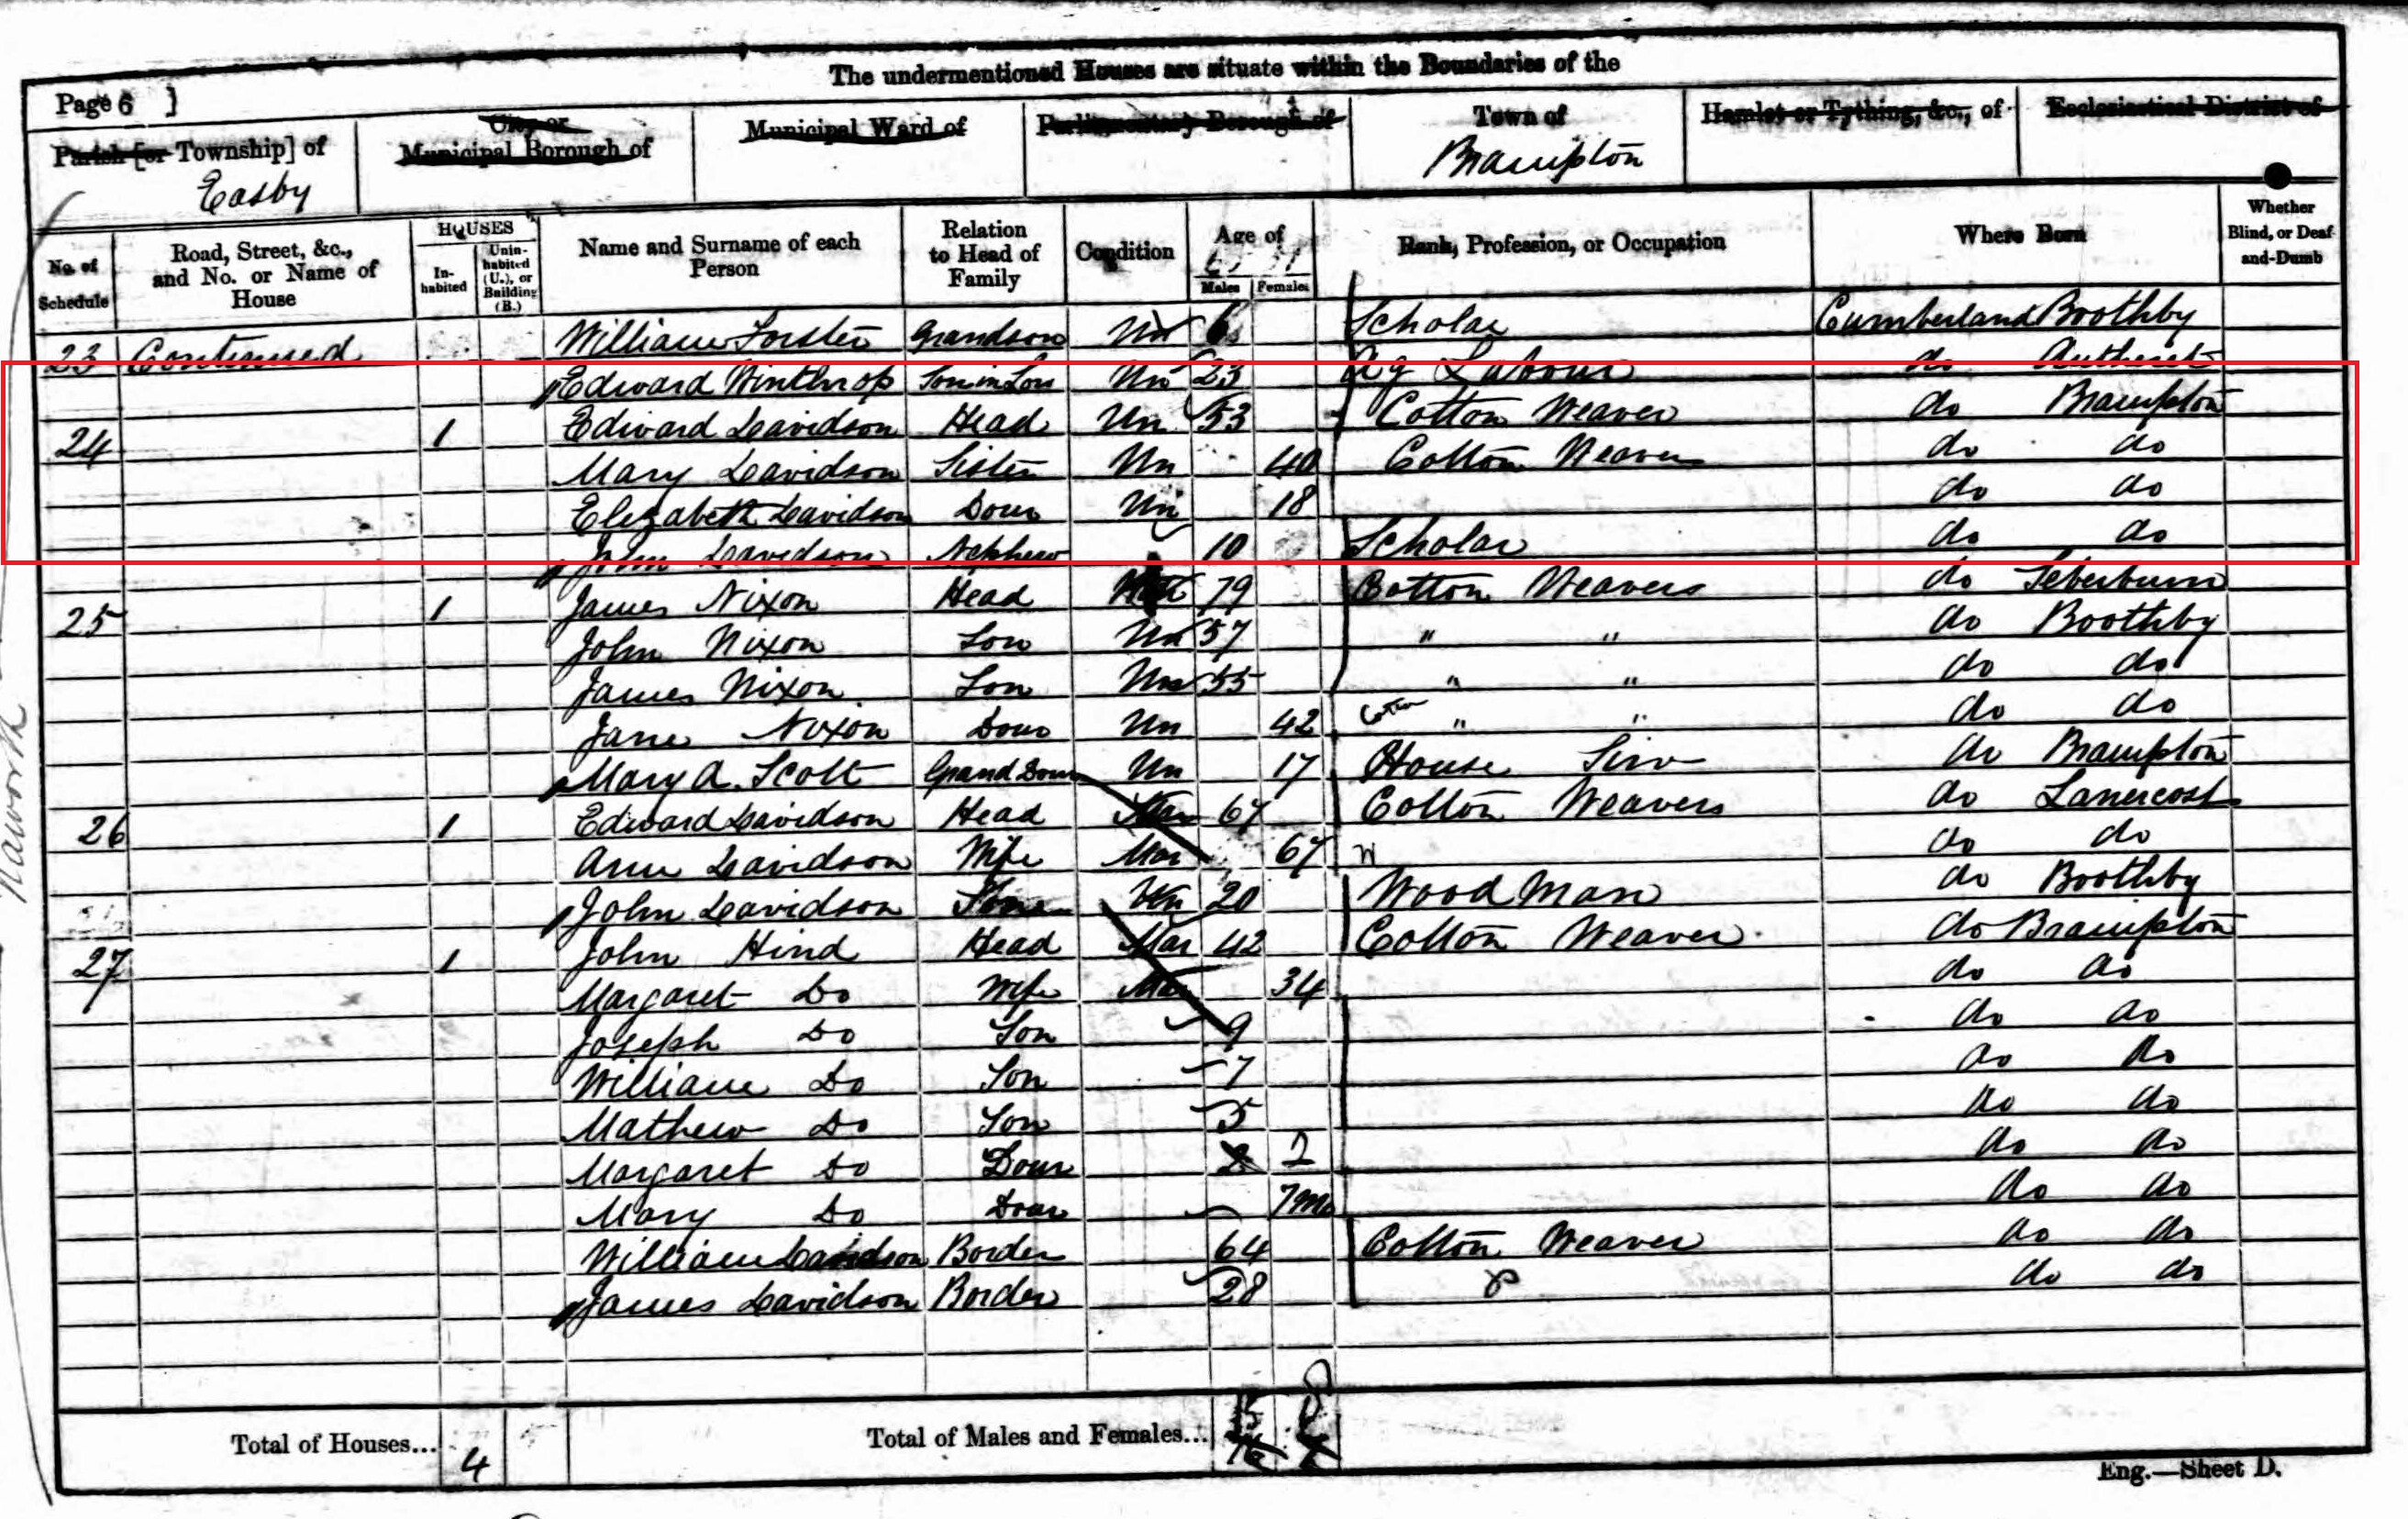 The undermentioned Houses are situate within the Boundaries of the
Page 6 ]
Parish [or Township] of
Easby
City or
Municipal Borough of
Municipal Ward of
Parliamentary Borough of
Town of
Brampton
Hamlet or Tything, &c., of
Ecclesiastical District of
No. of Schedule
Road, Street, &c., and No. or Name of House
HOUSES
In-habited
Unin-habited (U.), or Building (B.)
Name and Surname of each Person
Relation to Head of Family
Condition
Age of
Males Females
Rank, Profession, or Occupation
Where Born
Whether Blind, or Deaf-and-Dumb
23 Continued William Forster Grandson Un 6 Scholar Cumberland Boothby
Edward Winthrop Son in Law Un 23 Ag Labour do
24 1 Edward Davidson Head Un 53 Cotton Weaver do Brampton
Mary Davidson Sister Un 40 Cotton Weaver do do
Elizabeth Davidson Dour Un 18 do do
John Davidson Nephew 10 Scholar do do
25 1 James Nixon Head 79 Cotton Weavers do
John Nixon Son Un 57 " " do Boothby
James Nixon Son Un 55 " " do do
Jane Nixon Dour Un 42 Cotton " " do do
Mary A. Scott Grand Dour Un 17 House Serv do Brampton
26 1 Edward Davidson Head Mar 67 Cotton Weavers do Lanercost
Ann Davidson Wife Mar 67 W do do
John Davidson Son Un 20 Wood Man do Boothby
27 1 John Hind Head Mar 42 Cotton Weaver do Brampton
Margaret Do Wife Mar 34 do do
Joseph Do Son 9 do do
William Do Son 7 do do
Mathew Do Son 5 do do
Margaret Do Dour 2 2 do do
Mary Do Dour 7Mo do do
William Davidson Border 64 Cotton Weaver do do
James Davidson Border 28 do do
Total of Houses... 4
Total of Males and Females...
Eng.—Sheet D.
Naworth